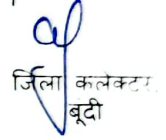 जिला कलेक्टर
बूंदी